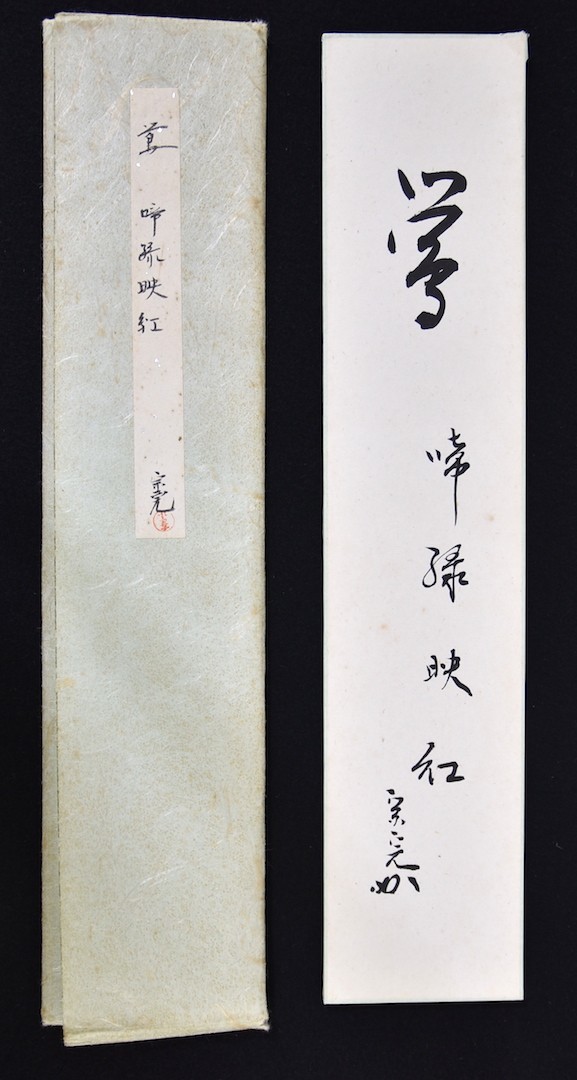 鶯
啼緑映紅
宗完
鶯 啼緑映紅
宗完